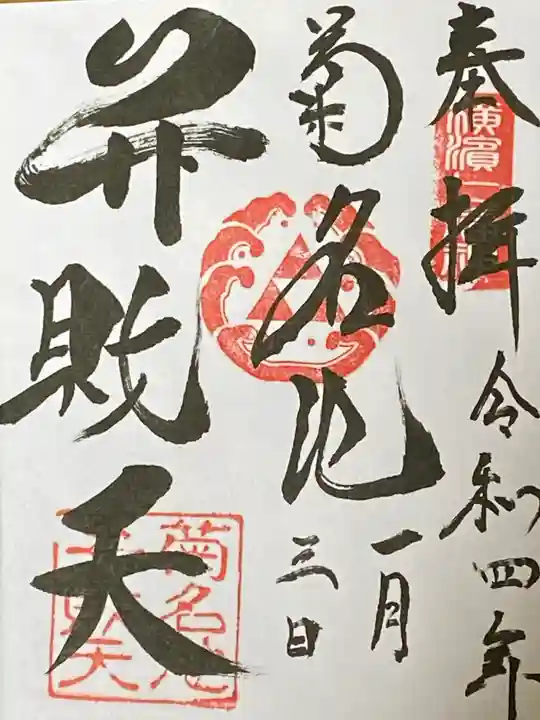 奉拝
令和四年
一月
三日
菊名池
弁財天
菊名池
弁財天